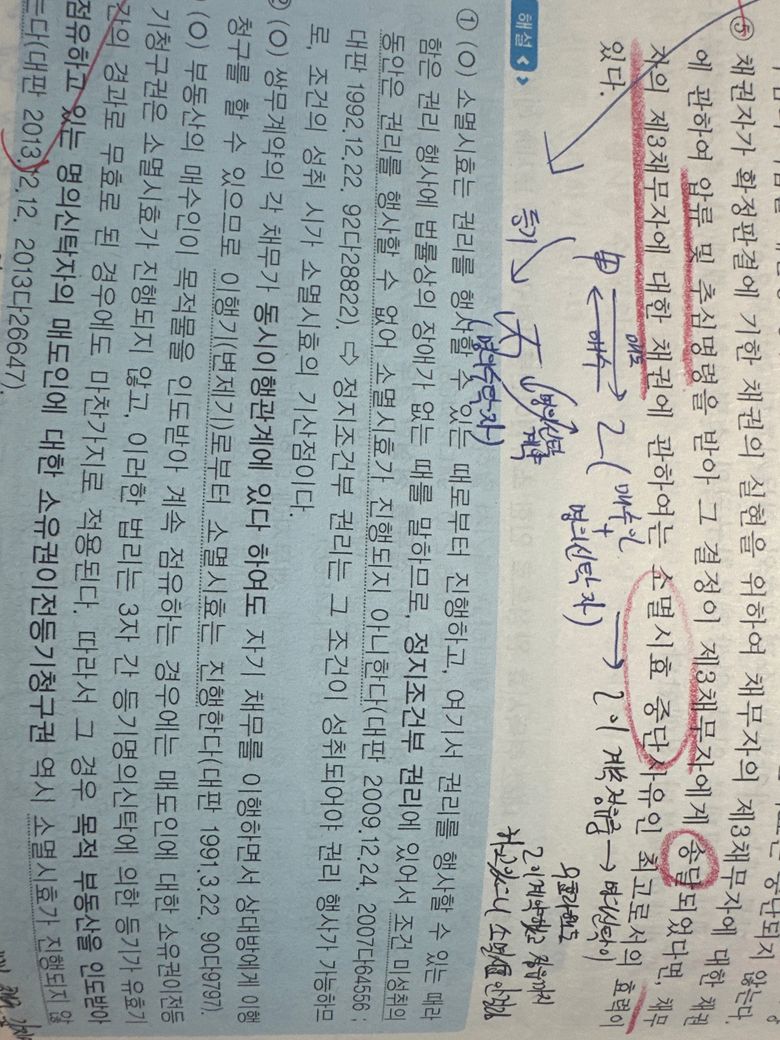 ⑤ 채권자가 확정판결에 기한 채권의 실현을 위하여 채무자의 제3채무자에 대한 채권
에 관하여 압류 및 추심명령을 받아 그 결정이 제3채무자에게 송달되었다면, 채무
자의 제3채무자에 대한 채권에 관하여는 소멸시효 중단사유인 최고로서의 효력이
있다.
甲
매도
매수
乙 (매수인
+
명의신탁자)
→ 乙이 계약
등기
丙
(명의수탁자)
명의신탁
계약
해설
① (O) 소멸시효는 권리를 행사할 수 있는 때로부터 진행하고, 여기서 권리를 행사할 수 있는 때라
함은 권리 행사에 법률상의 장애가 없는 때를 말하므로, 정지조건부 권리에 있어서 조건 미성취의
동안은 권리를 행사할 수 없어 소멸시효가 진행되지 아니한다(대판 2009.12.24, 2007다64556 ;
대판 1992.12.22, 92다28822). ⇨ 정지조건부 권리는 그 조건이 성취되어야 권리 행사가 가능하므
로, 조건의 성취 시가 소멸시효의 기산점이다.
② (O) 쌍무계약의 각 채무가 동시이행관계에 있다 하여도 자기 채무를 이행하면서 상대방에게 이행
청구를 할 수 있으므로 이행기(변제기)로부터 소멸시효는 진행한다(대판 1991.3.22, 90다9797).
(O) 부동산의 매수인이 목적물을 인도받아 계속 점유하는 경우에는 매도인에 대한 소유권이전등
기청구권은 소멸시효가 진행되지 않고, 이러한 법리는 3자 간 등기명의신탁에 의한 등기가 유효기
간의 경과로 무효로 된 경우에도 마찬가지로 적용된다. 따라서 그 경우 목적 부동산을 인도받아
점유하고 있는 명의신탁자의 매도인에 대한 소유권이전등기청구권 역시 소멸시효가 진행되지 않
는다(대판 2013.12.12, 2013다26647).